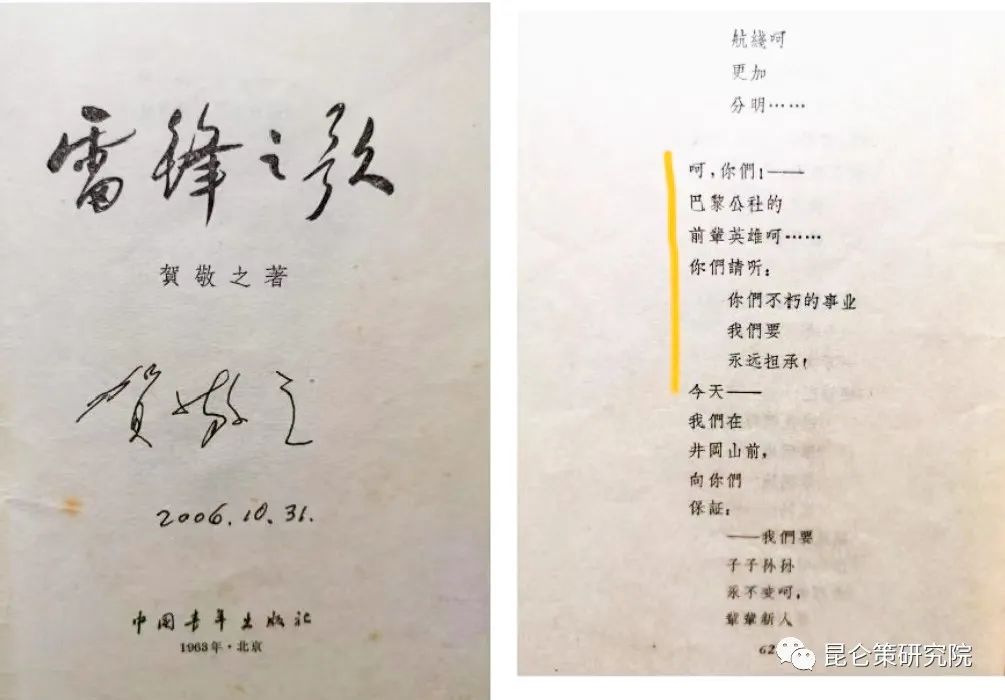 雷鋒之歌
賀敬之著
賀敬之
2006.10.31.
中国青年出版社
1963年·北京
航綫呵
更加
分明……
呵，你們！——
巴黎公社的
前輩英雄呵……
你們請听：
你們不朽的事业
我們要
永远担承！
今天——
我們在
井岡山前，
向你們
保証：
——我們要
子子孙孙
永不变呵，
輩輩新人
62
昆仑策研究院